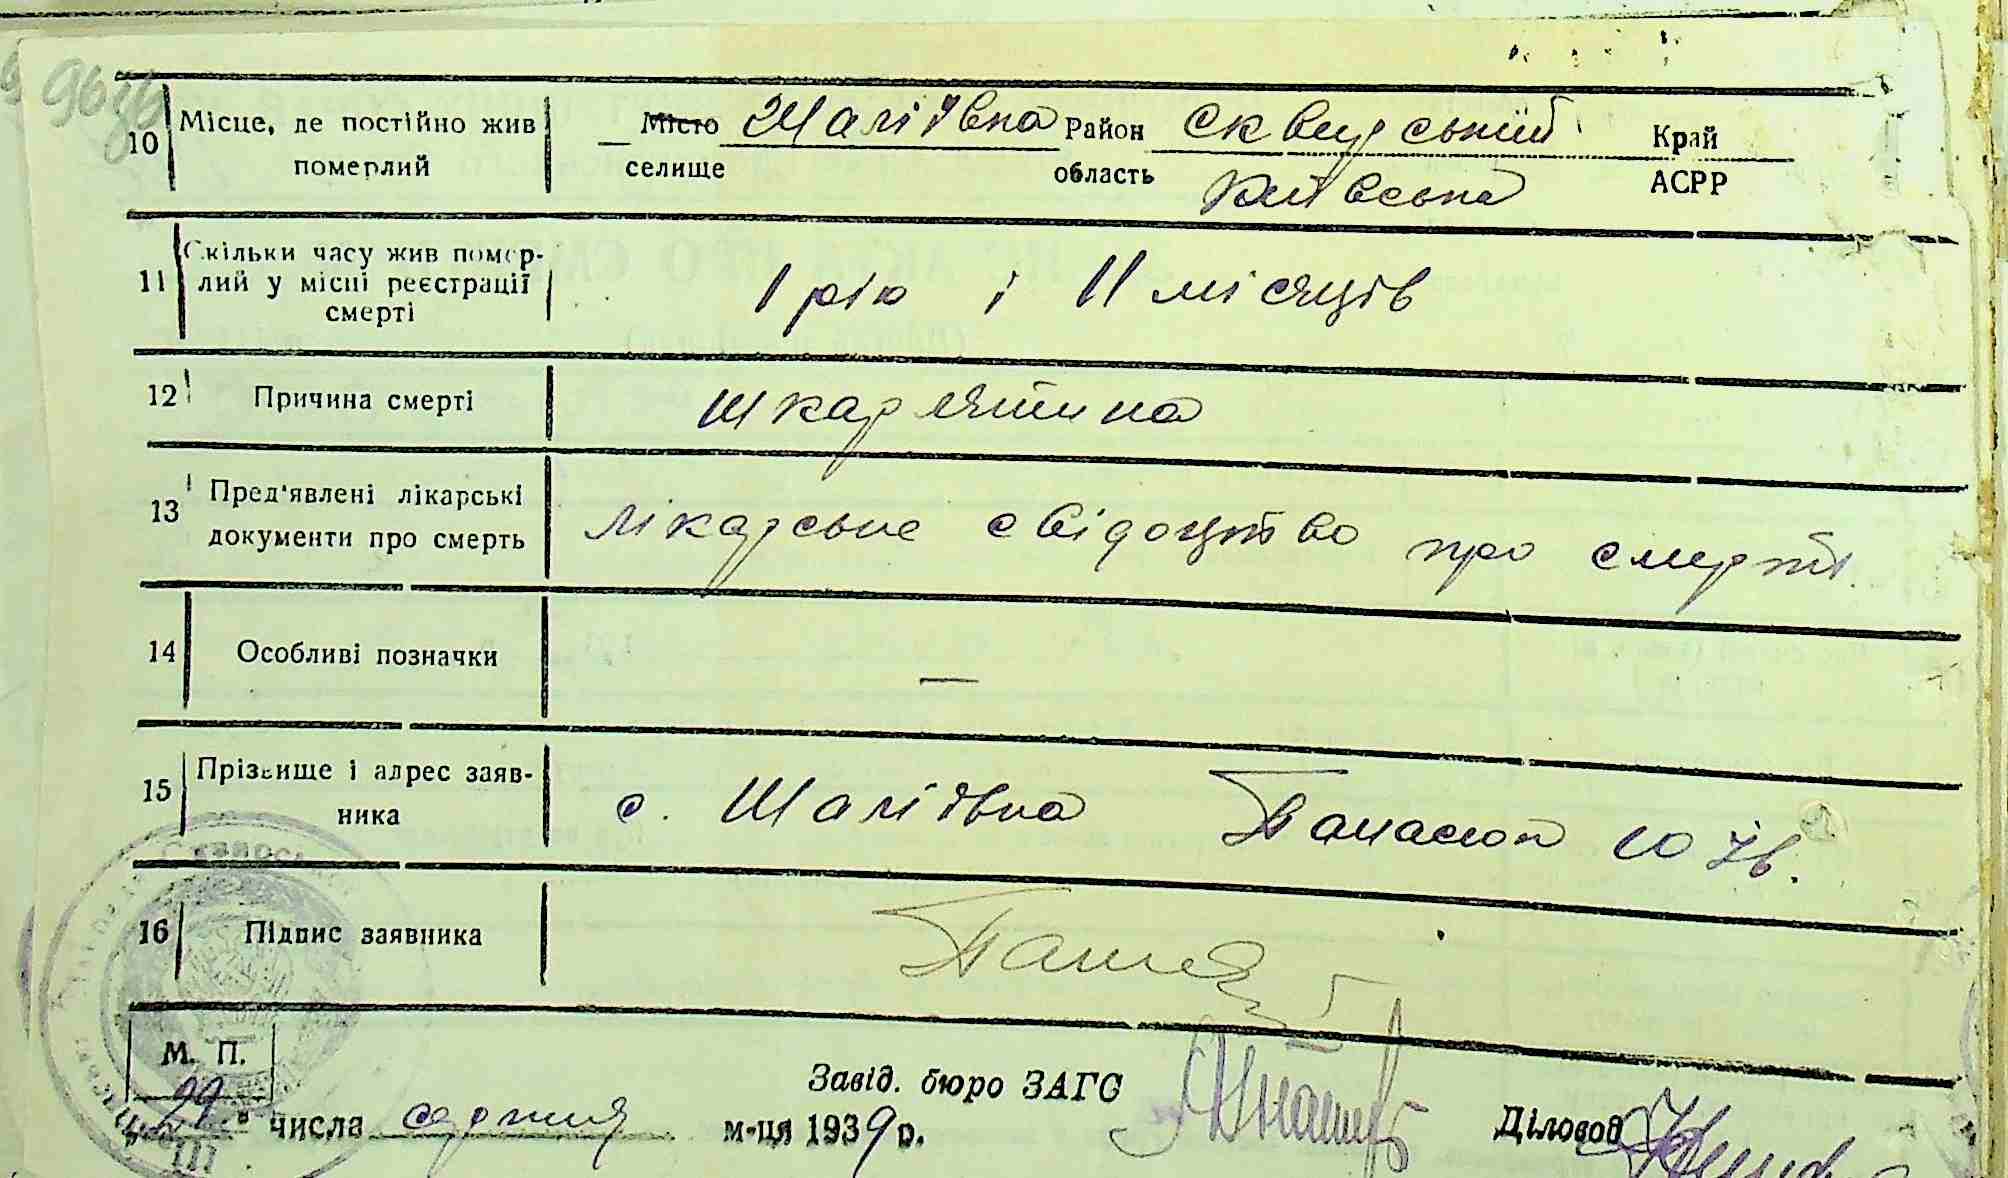 10 Місце, де постійно жив померлий
Місто Шаліївка Район Сквирський Край
селище область Київська АСРР
11 Скільки часу жив помер-
лий у місці реєстрації
смерті
1 рік і 11 місяців
12 Причина смерті шкарлятина
13 Пред'явлені лікарські
документи про смерть
лікарське свідоцтво про смерть
14 Особливі позначки —
15 Прізвище і адрес заяв-
ника
с. Шаліївка Панасюк
16 Підпис заявника
М. П.
Завід. бюро ЗАГС
29 числа серпня м-ця 1939 р. Діловод